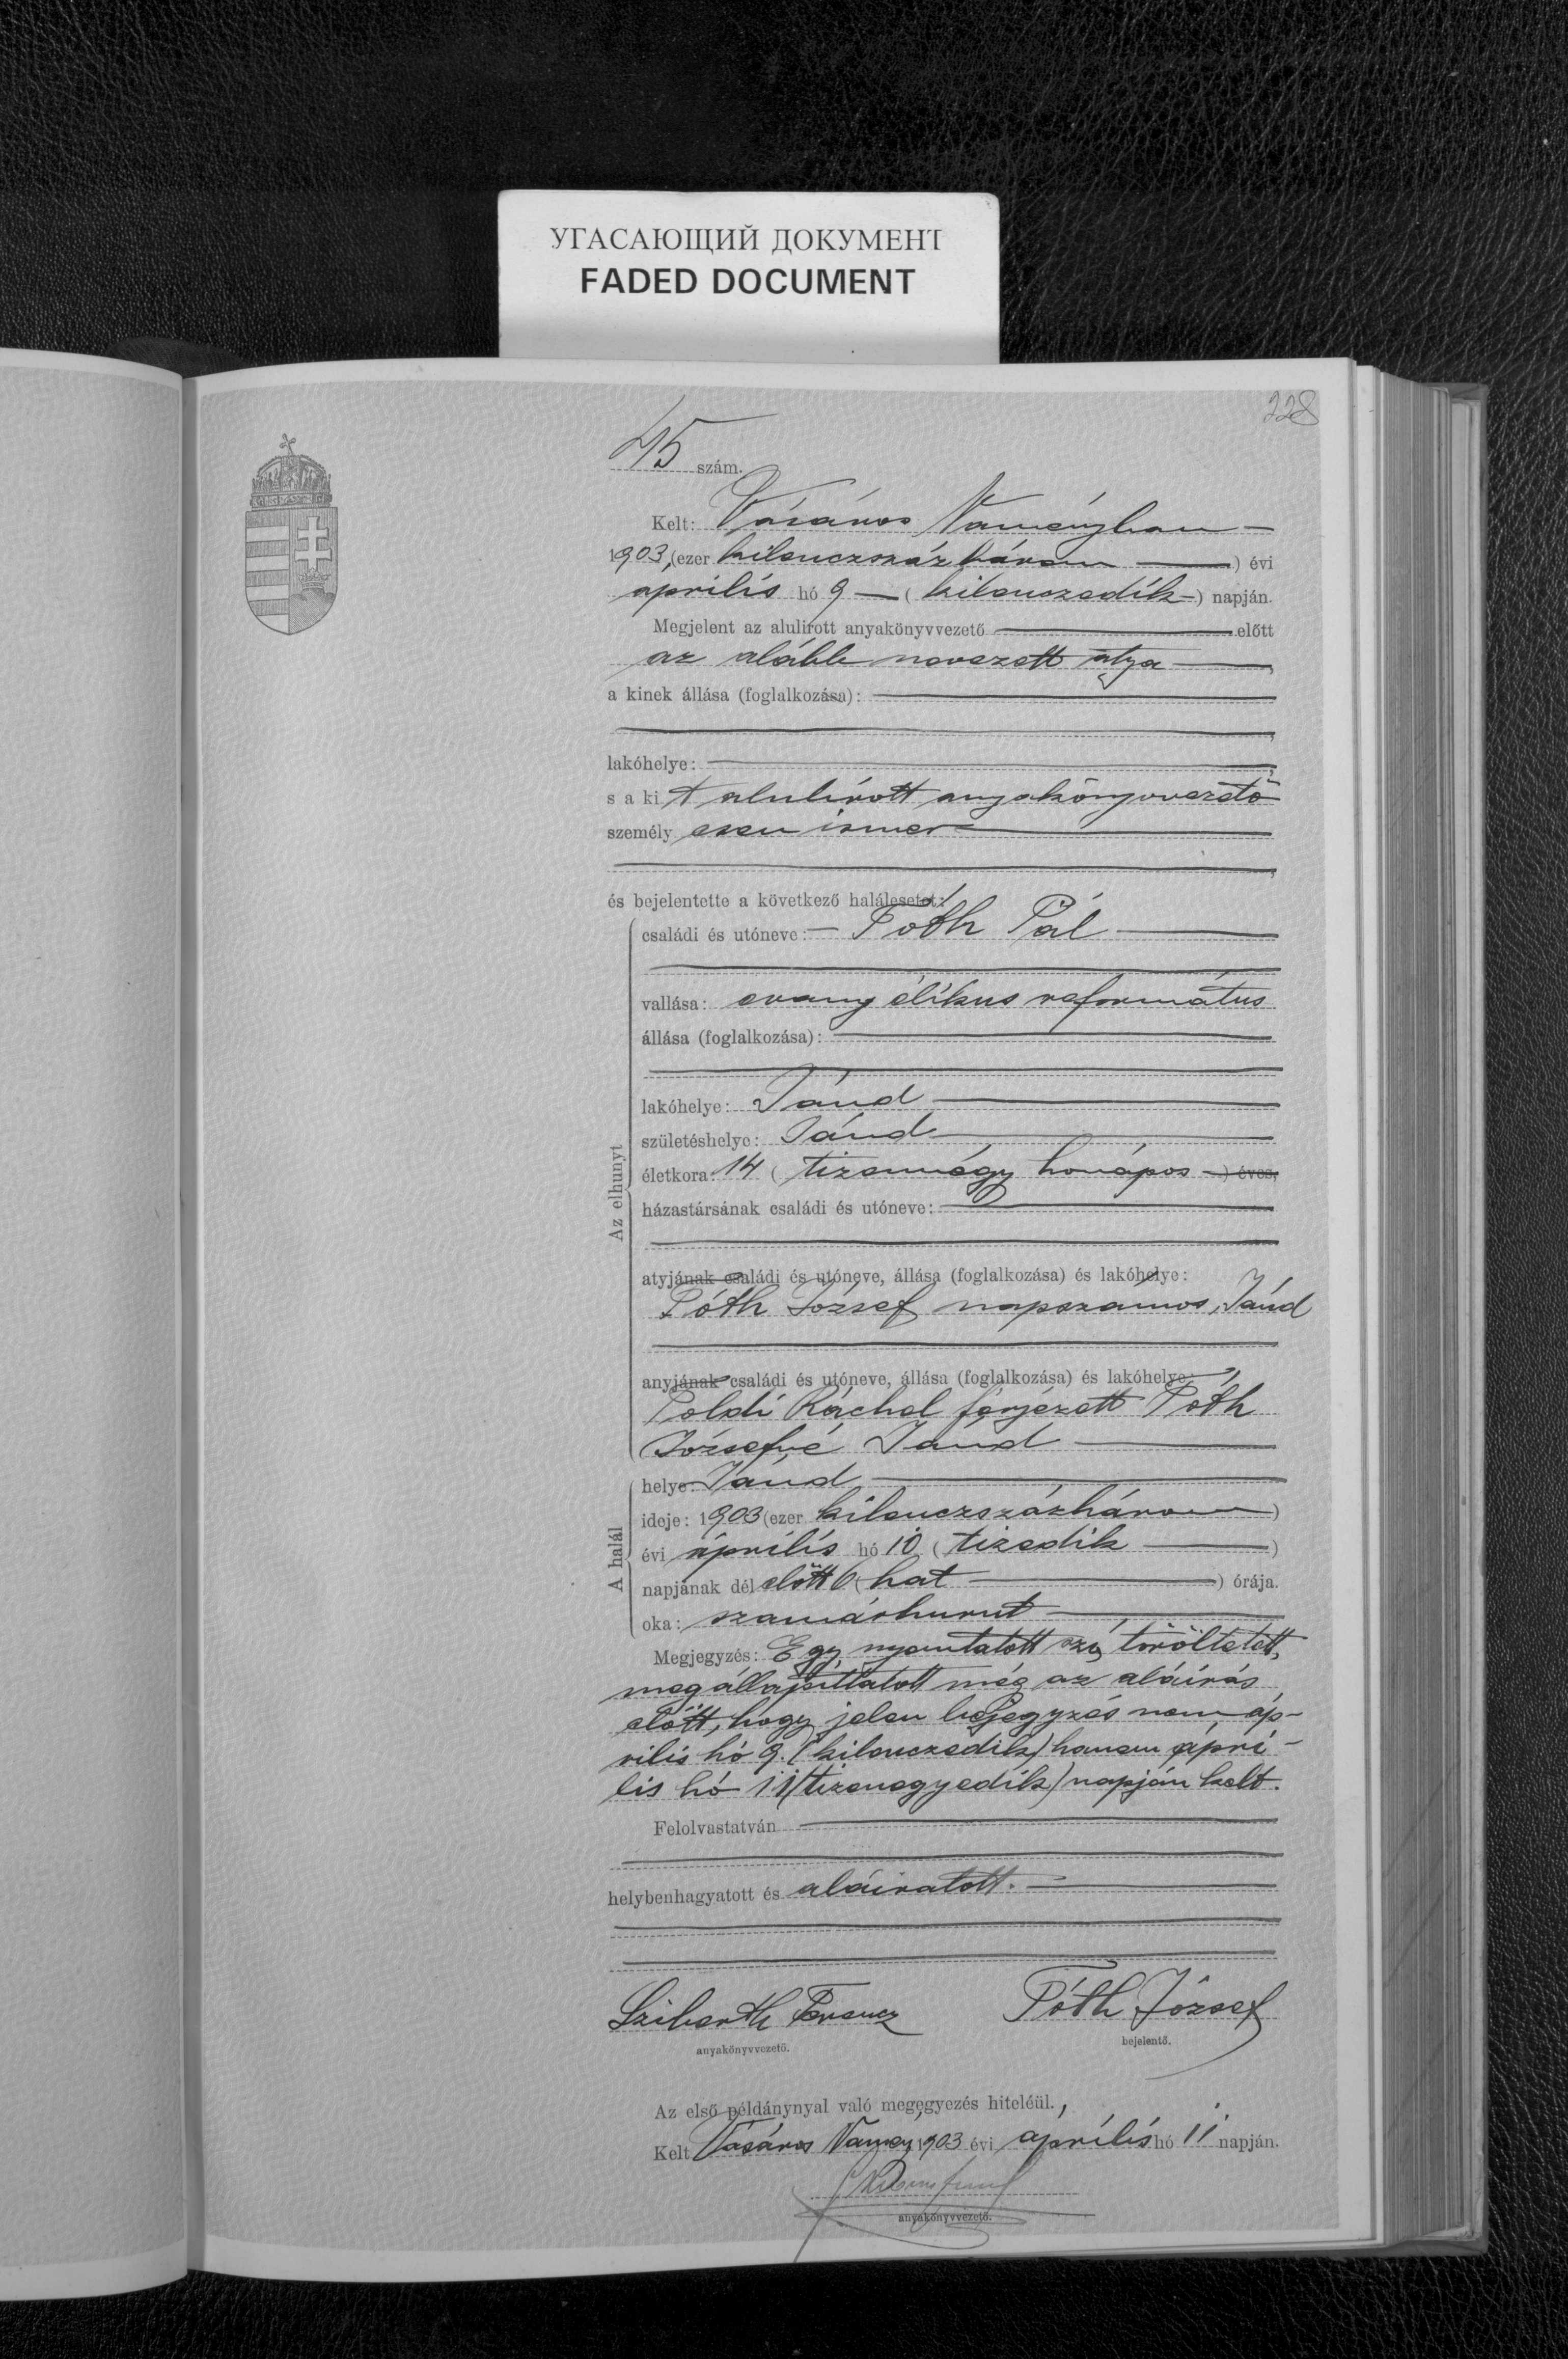 УГАСАЮЩИЙ ДОКУМЕНТ
FADED DOCUMENT
228
45 szám.
Kelt: Vásáros Naményban
1903, (ezer kilenczszáz három) évi
április hó 9 (kilenczedik) napján.
Megjelent az alulirott anyakönyvvezető előtt
az alább nevezett atya,
a kinek állása (foglalkozása):
lakóhelye:
s a kit alulírott anyakönyvvezető
személyesen ismer
és bejelentette a következő halálesetet:
Az elhunyt
családi és utóneve: Tóth Pál
vallása: evangélikus református
állása (foglalkozása):
lakóhelye: Jánd
születéshelye: Jánd
életkora: 14 (tizennégy hónapos) éves,
házastársának családi és utóneve:
atyjának családi és utóneve, állása (foglalkozása) és lakóhelye:
Tóth József napszámos, Jánd
anyjának családi és utóneve, állása (foglalkozása) és lakóhelye:
Poldi Ráchel férjezett Tóth
Józsefné Jánd
A halál
helye: Jánd
ideje: 1903 (ezer kilenczszázhárom)
évi április hó 10 (tizedik)
napjának dél előtt 6 (hat) órája.
oka: szamárhurut
Megjegyzés: Egy nyomtatott szó töröltetett,
megállapíttatott még az aláírás
előtt, hogy jelen bejegyzés nem áp-
rilis hó 9. (kilenczedik) hanem ápri-
lis hó 11 (tizenegyedik) napján kelt.
Felolvastatván
helybenhagyatott és aláiratott.
Ferencz Tóth József
anyakönyvvezető. bejelentő.
Az első példánynyal való megegyezés hiteléül.
Kelt Vásáros Namény, 1903 évi április hó 11 napján.
anyakönyvvezető.